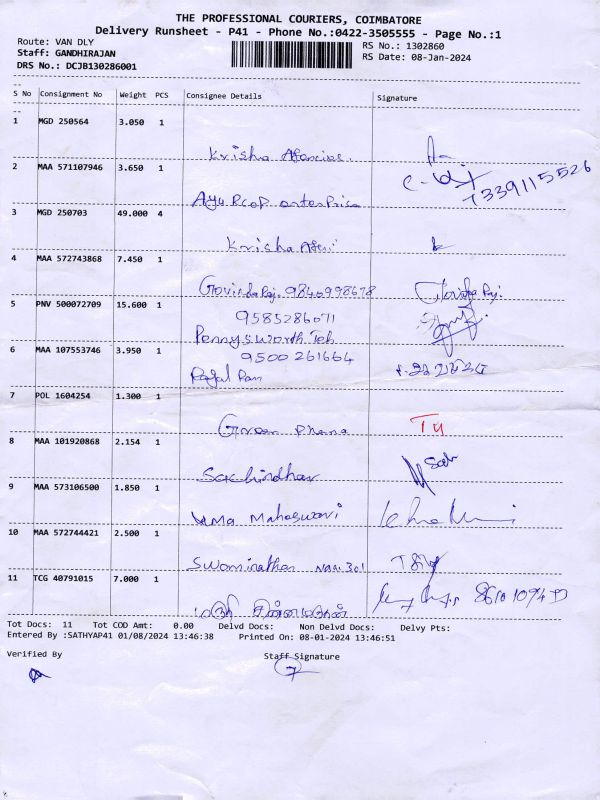 THE PROFESSIONAL COURIERS, COIMBATORE
Delivery Runsheet - P41 - Phone No.:0422-3505555 - Page No.:1
Route: VAN DLY
Staff: GANDHIRAJAN
DRS No.: DCJB130286001
RS No.: 1302860
RS Date: 08-Jan-2024
S No Consignment No Weight PCS Consignee Details Signature
1 MGD 250564 3.050 1
Krisha Agencies.
2 MAA 571107946 3.650 1
7339115526
3 MGD 250703 49.000 4
Krisha
4 MAA 572743868 7.450 1
Govindaraj. 9840998678
5 PNV 500072709 15.600 1
9585286071
Pennysworth Teh
6 MAA 107553746 3.950 1
9500261664
7 POL 1604254 1.300 1
Green
8 MAA 101920868 2.154 1
Sachindhar
9 MAA 573106500 1.850 1
Uma Maheswari
10 MAA 572744421 2.500 1
Swaminathan
11 TCG 40791015 7.000 1
Tot Docs: 11 Tot COD Amt: 0.00 Delvd Docs: Non Delvd Docs: Delvy Pts:
Entered By :SATHYAP41 01/08/2024 13:46:38 Printed On: 08-01-2024 13:46:51
Verified By Staff Signature